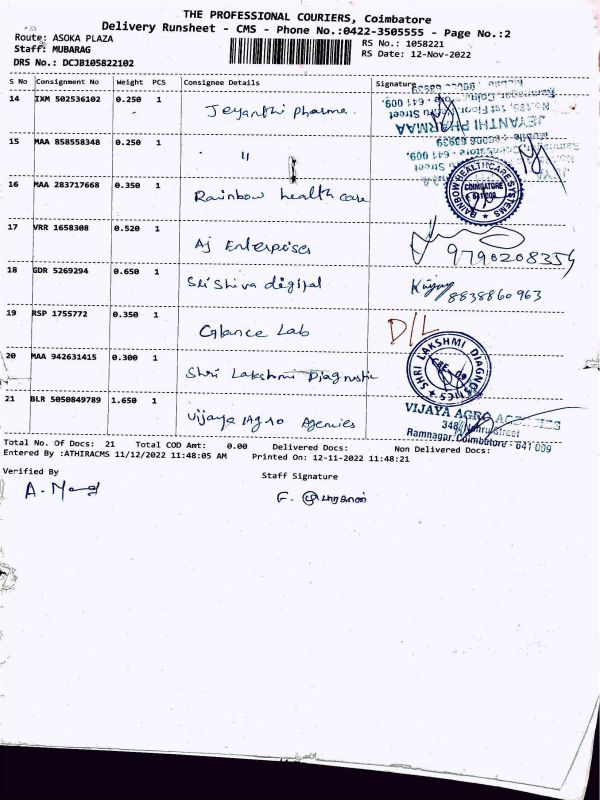 THE PROFESSIONAL COURIERS, Coimbatore
Delivery Runsheet - CMS - Phone No.:0422-3505555 - Page No.:2
Route: ASOKA PLAZA
RS No.: 1058221
Staff: MUBARAG
RS Date: 12-Nov-2022
DRS No.: DCJB105822102
S No Consignment No Weight PCS Consignee Details Signature
14 IXM 502536102 0.250 1 Jeyanthi pharma.
JEYANTHI PHARMAA
15 MAA 858558348 0.250 1 "
16 MAA 283717668 0.350 1 Rainbow health care
RAINBOW HEALTHCARE SYSTEMS
COIMBATORE
641 009
17 VRR 1658308 0.520 1 Aj Enterprises
9790208354
18 GDR 5269294 0.650 1 Sri Shiva digital
8838860963
19 RSP 1755772 0.350 1 Glance Lab D/L
20 MAA 942631415 0.300 1 Shri Lakshmi Diagnostic
SHRI LAKSHMI DIAGNOSTICS
CBE-09
21 BLR 5050849789 1.650 1 Vijaya Agro Agencies
VIJAYA AGRO AGENCIES
348, Nehru Street
Ramnagar, Coimbatore - 641 009
Total No. Of Docs: 21 Total COD Amt: 0.00 Delivered Docs: Non Delivered Docs:
Entered By :ATHIRACMS 11/12/2022 11:48:05 AM Printed On: 12-11-2022 11:48:21
Verified By
Staff Signature